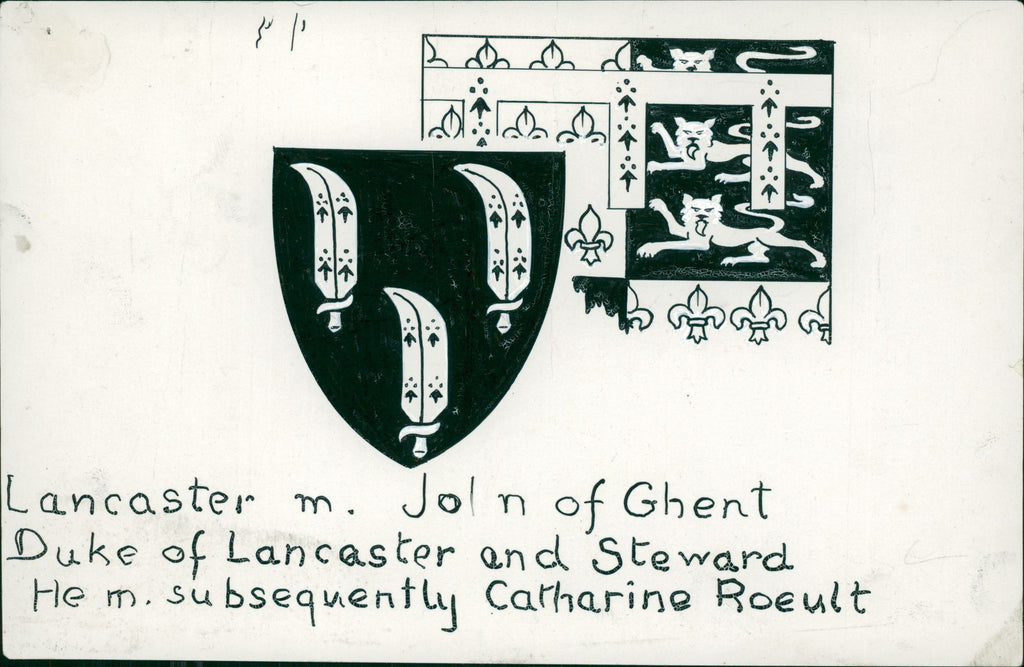 Lancaster m. Jol n of Ghent
Duke of Lancaster and Steward
He m. subsequently Catharine Roeult